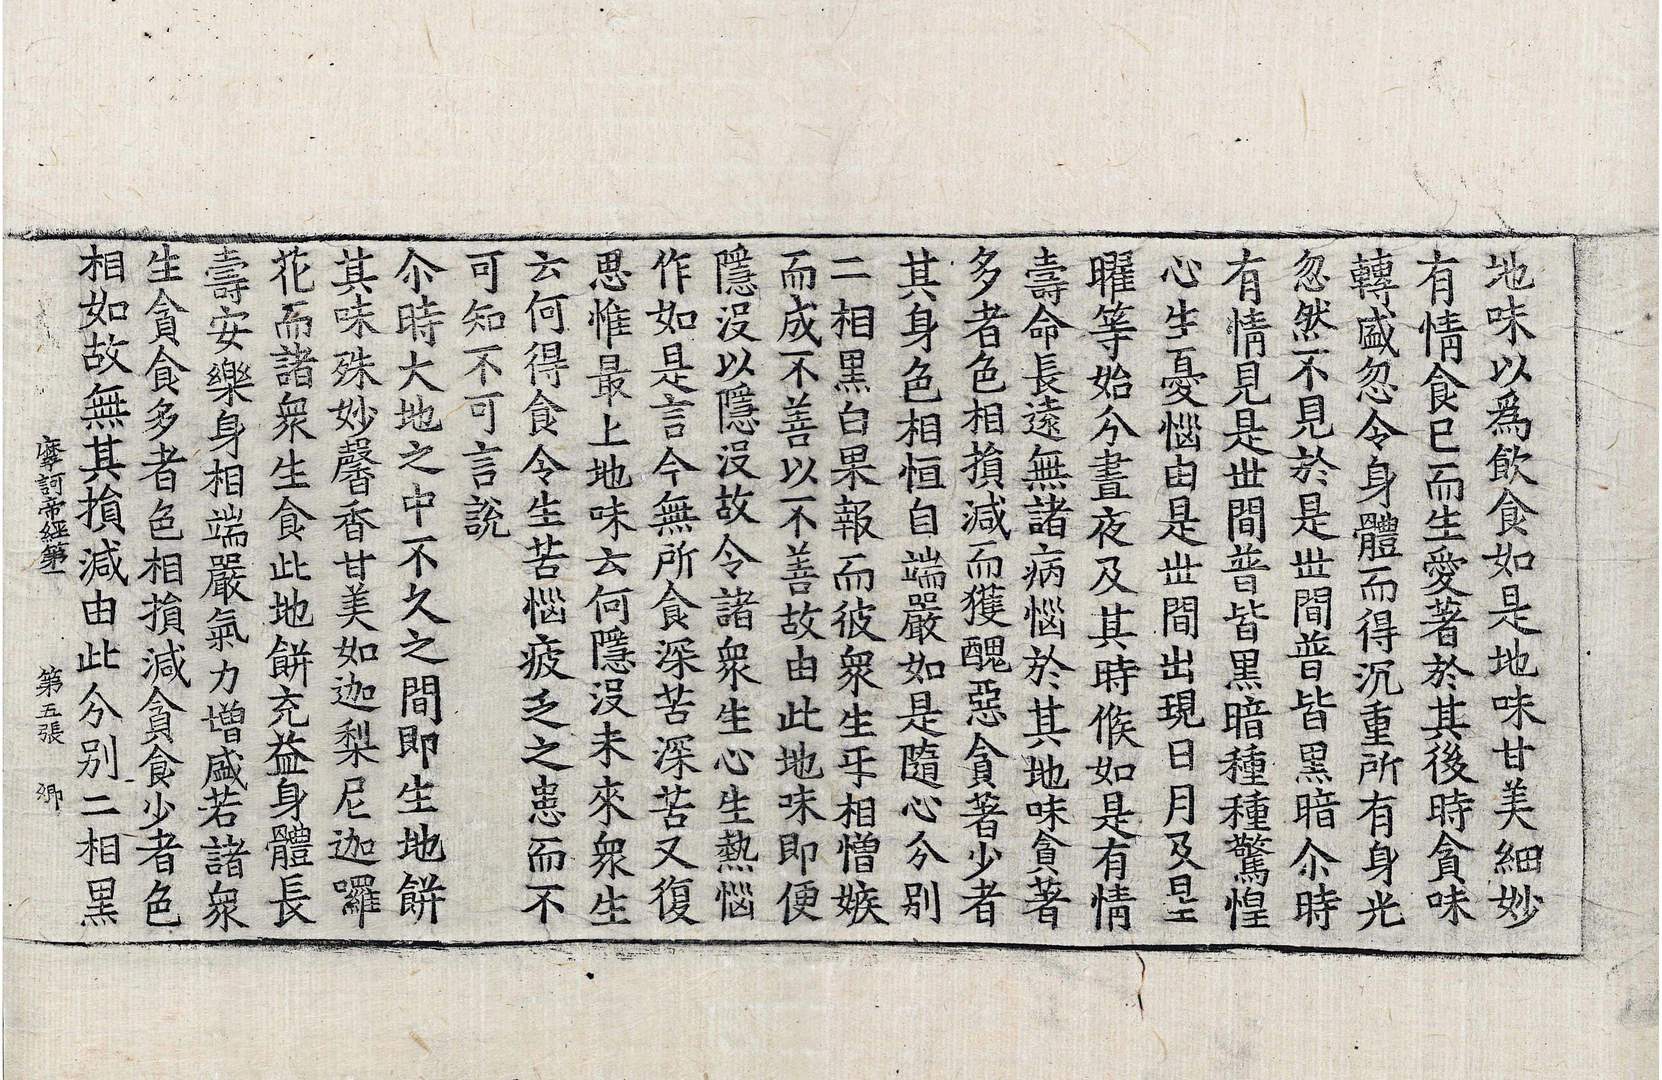 地味以爲飲食如是地味甘美細妙
有情食已而生愛著於其後時貪味
轉盛忽令身體而得沉重所有身光
忽然不見於是世間普皆黑暗尒時
有情見是世間普皆黑暗種種驚惶
心生憂惱由是世間出現日月及星
曜等始分晝夜及其時候如是有情
壽命長遠無諸病惱於其地味貪著
多者色相損減而獲醜惡貪著少者
其身色相恒自端嚴如是隨心分别
二相黑白果報而彼衆生互相憎嫉
而成不善以不善故由此地味即便
隱没以隱没故令諸衆生心生熱惱
作如是言今無所食深苦深苦又復
思惟最上地味云何隱没未來衆生
云何得食令生苦惱疲乏之患而不
可知不可言說
尒時大地之中不久之間即生地餅
其味殊妙馨香甘美如迦梨尼迦囉
花而諸衆生食此地餅充益身體長
壽安樂身相端嚴氣力增盛若諸衆
生貪食多者色相損減貪食少者色
相如故無其損減由此分别二相黑
摩訶帝經第一 第五張 卿